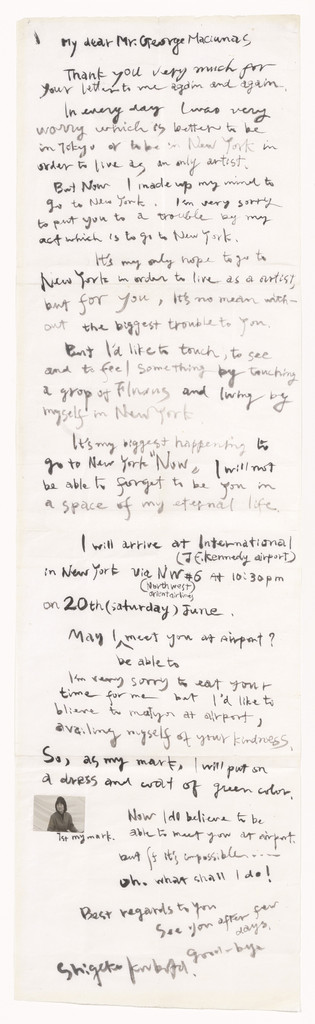 My dear Mr. George Maciunas
Thank you very much for
your letter to me again and again.
In every day I was very
worry which is better to be
in Tokyo or to be in New York in
order to live as an only artist.
But Now I made up my mind to
go to New York. I'm very sorry
to put you to a trouble by my
act which is to go to New York.
It's my only hope to go to
New York in order to live as a artist,
but for you, It's no mean with-
out the biggest trouble to you.
But I'd like to touch, to see
and to feel something by touching
a grop of Fluxus and living by
myself in New York
It's my biggest happening to
go to New York "Now. I will not
be able to forget to be you in
a space of my eternal life.
I will arrive at International
(J.F. Kennedy airport)
in New York via NW#6 At 10:30pm
(North west orient airlines)
on 20th (saturday) June.
May I meet you at airport?
be able to
I'm very sorry to eat your
time for me but I'd like to
blieve to meet you at airport,
availing myself of your kindness.
So, as my mark, I will put on
a dress and coat of green color.
Now I do believe to be
Is my mark. able to meet you at airport.
but if it's impossible.....
oh. what shall I do!
Best regards to you
See you after few
days.
good-bye
Shigeko Kubota.